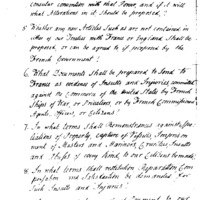 consular convention with that Power, and if it will
what Alterations in it should be proposed?
5. Whether any new Articles Such as are not contained in
either of our Treaties with France or England Shall be
proposed, or can be agreed to if proposed by the
French Government?
6. What Documents Shall be prepared to Send to
France as evidence of Insults and Injuries committed
against the commerce of the United States by French
Ships of War, or Privateers, or by French Commissioners
Agents, Officers, or Citizens?
7. In what terms Shall Remonstrances against
of Property, captures of Vessells, Imprisonment
of Masters and Mariners, Cruelties, Insults
and Abuses of every kind, to our Citizens be made?
8. In what terms shall restitution Reparation Compensation
and Satisfaction be demanded for
Such Insults and Injuries?